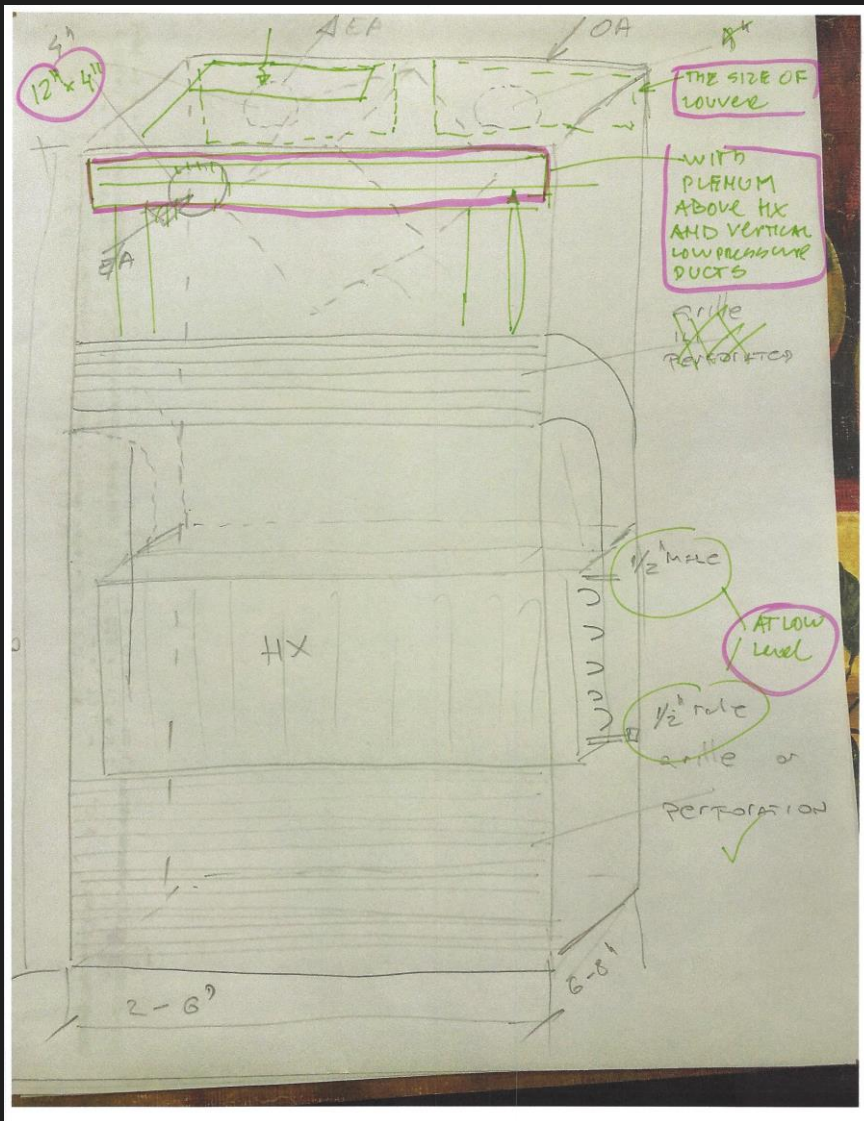 4"
EA
OA
12" x 4"
THE SIZE OF
LOUVER
WITH
PLENUM
ABOVE HX
AND VERTICAL
LOW PRESSURE
DUCTS
EA
grille
PERFORATED
1/2" MALE
HX
AT LOW
Level
1/2"
grille or
PERFORATION
2-6"
6-8"